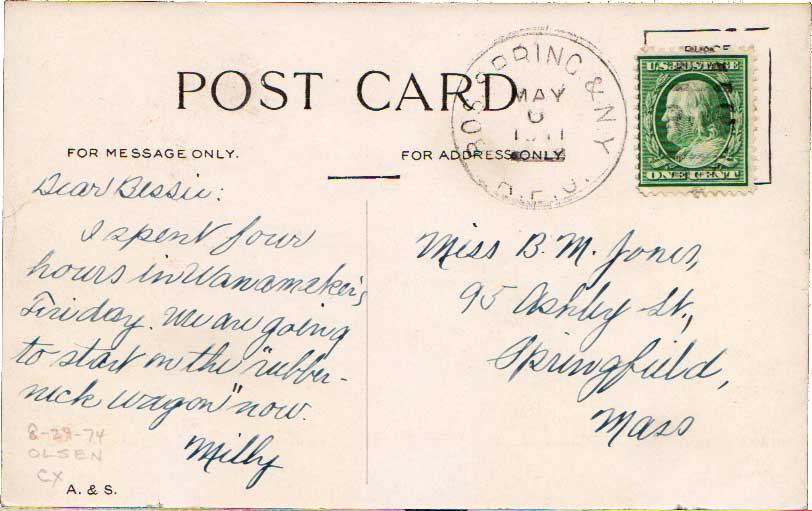 POST CARD
BOS. SPRING & N.Y.
MAY
1911
R.P.O.
U.S. POSTAGE
ONE CENT
FOR MESSAGE ONLY.
FOR ADDRESS ONLY
Dear Bessie:
I spent four
hours in Wanamaker's
Friday. We are going
to start on the "rubber-
neck wagon" now.
Milly
Miss B. M. Jones,
95 Ashley St.,
Springfield,
Mass
8-29-74
OLSEN
CX
A. & S.